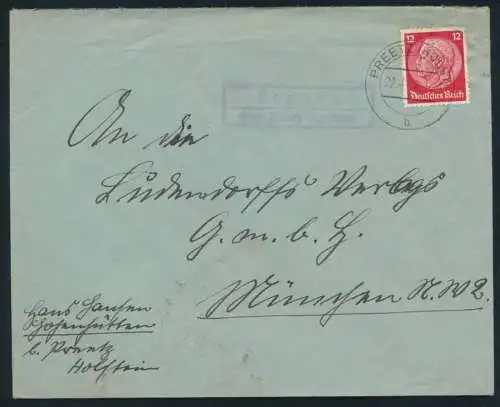 12 12
Deutsches Reich
PREETZ
b
An die
Ludendorffs Verlags
G.m.b.H.
München N.W 2.
Hans Hansen
b. Preetz
Holstein